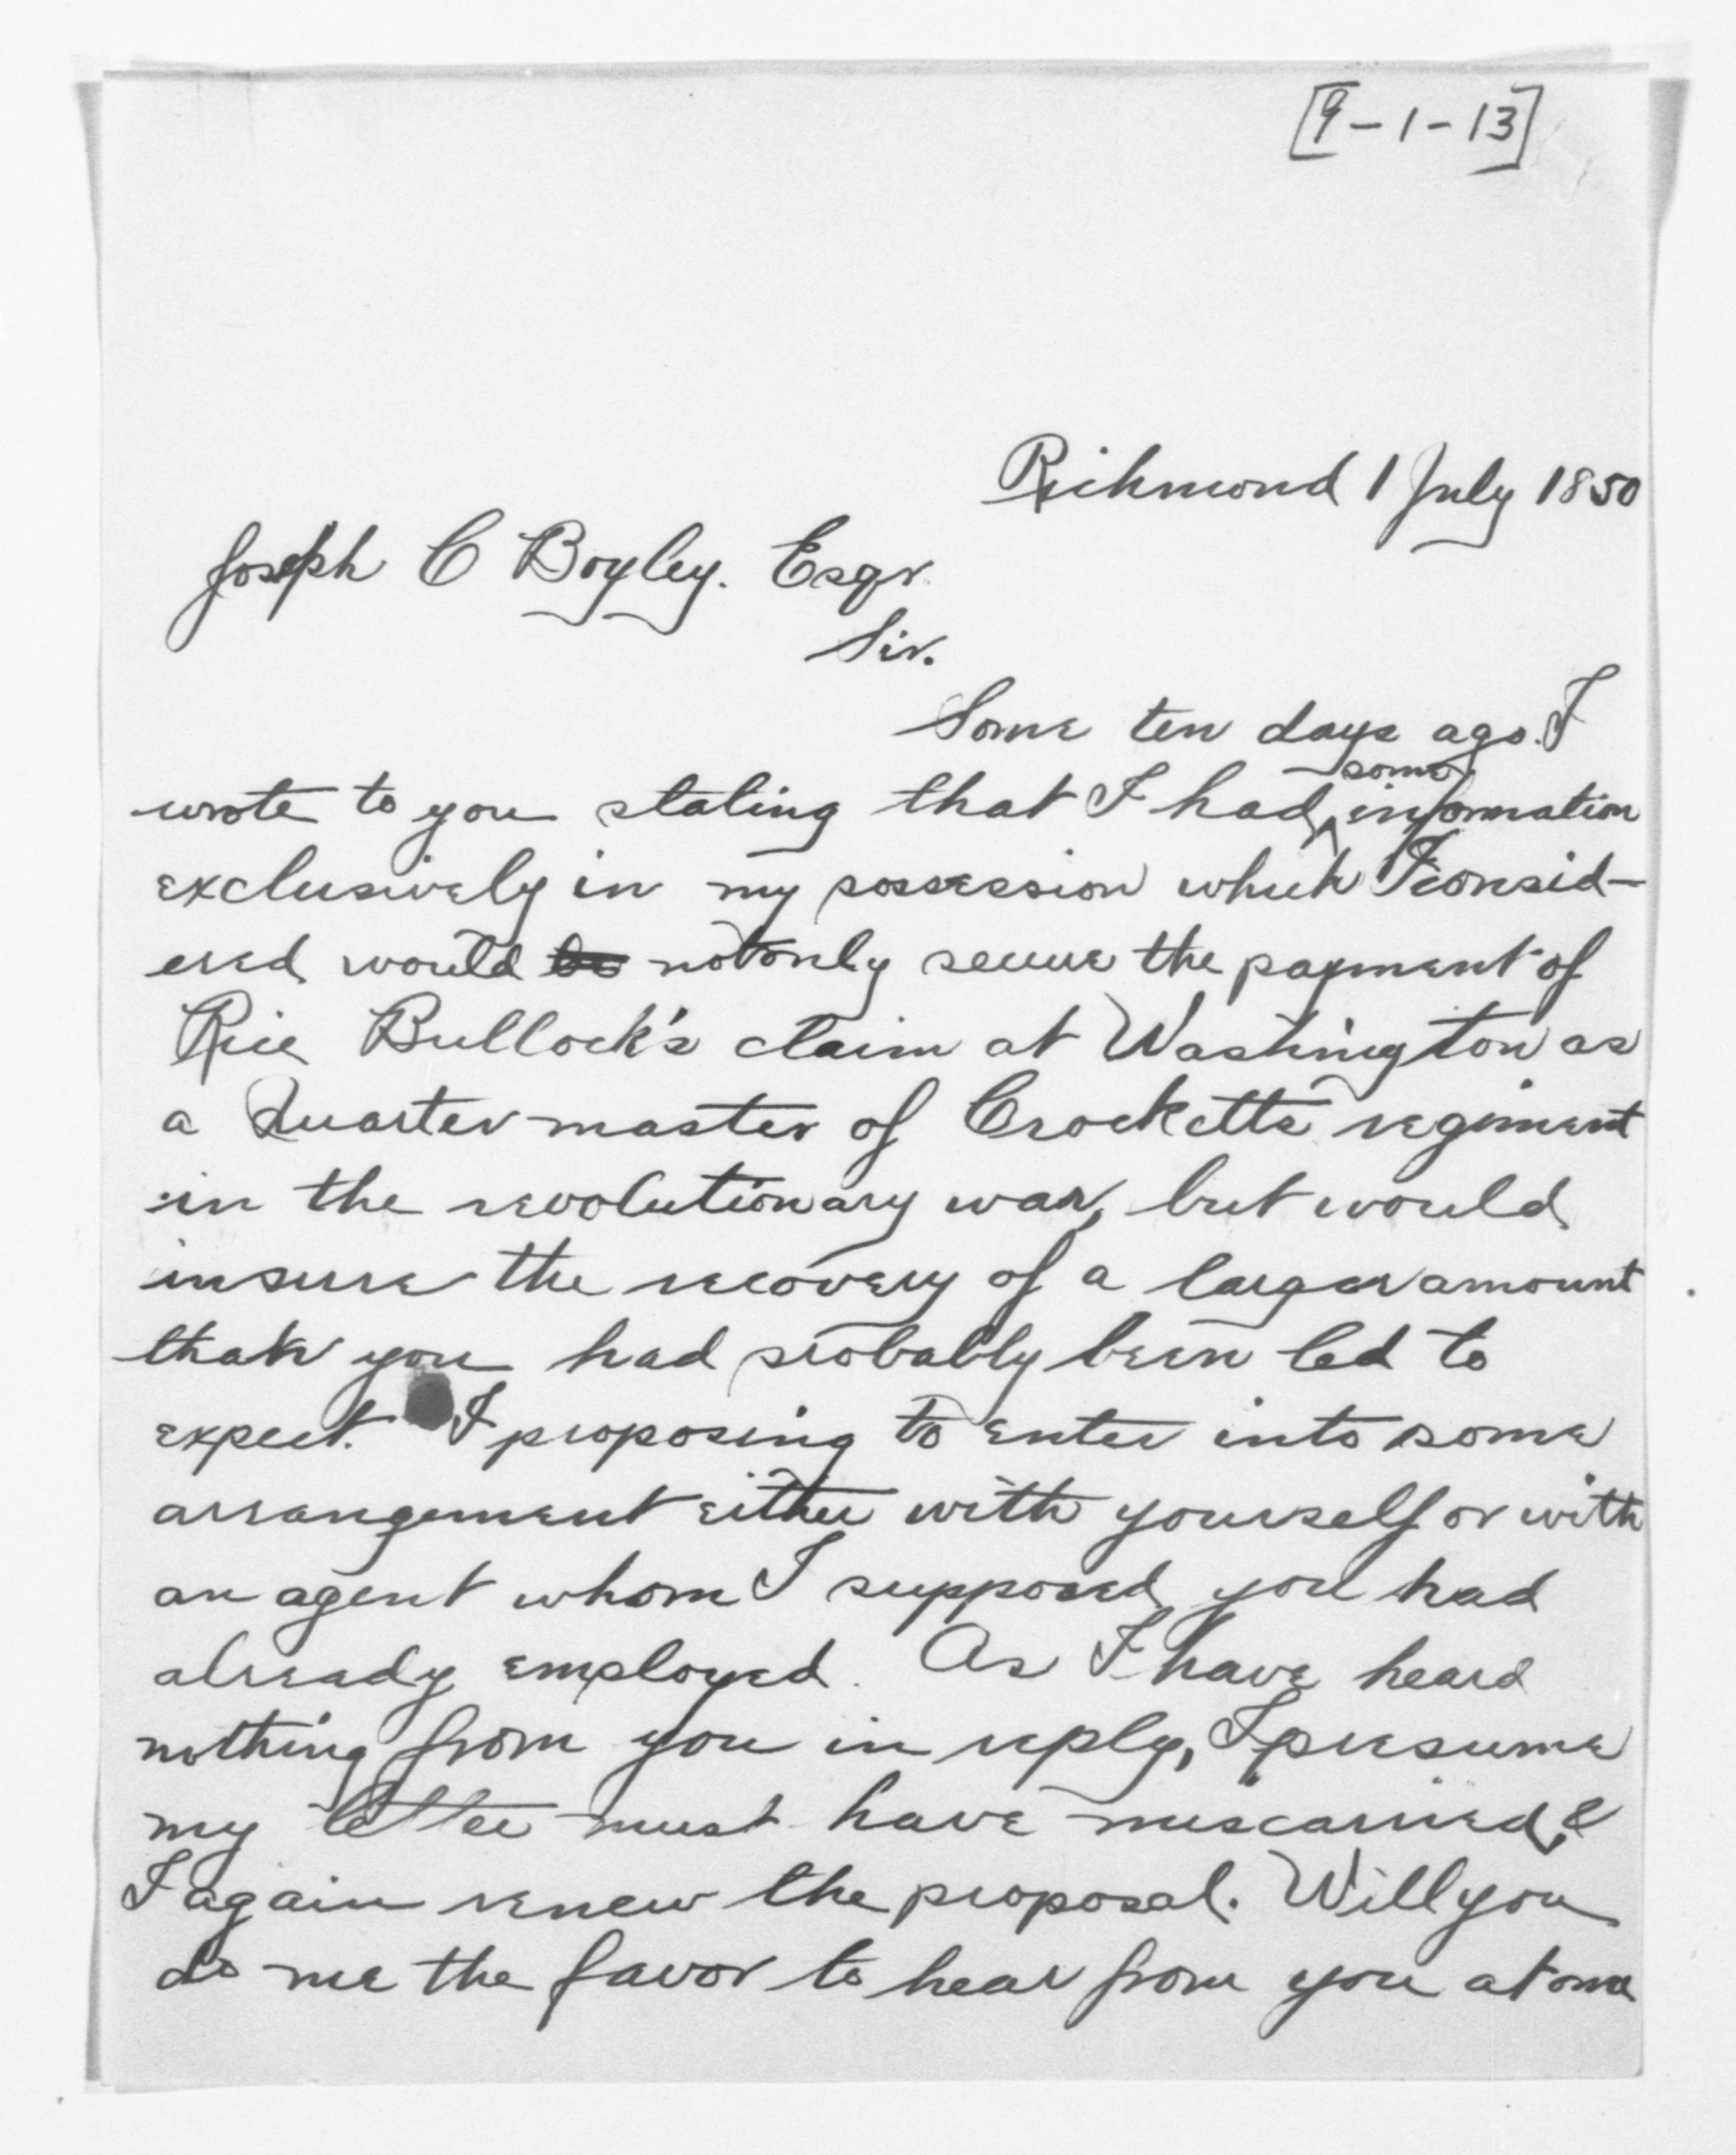 [9-1-13]
Richmond 1 July 1850
Joseph C Boyley. Esqr.
Sir.
Some ten days ago. I
wrote to you stating that I had some information
exclusively in my possession which I consid-
ered would be not only secure the payment of
Rice Bullock's claim at Washington as
a Quartermaster of Crocketts regiment
in the revolutionary war, but would
insure the recovery of a larger amount
than you had probably been led to
expect. I proposing to enter into some
arrangement either with yourself or with
an agent whom I supposed you had
already employed. As I have heard
nothing from you in reply, I presume
my letter must have miscarried, &
I again renew the proposal. Will you
do me the favor to hear from you at once